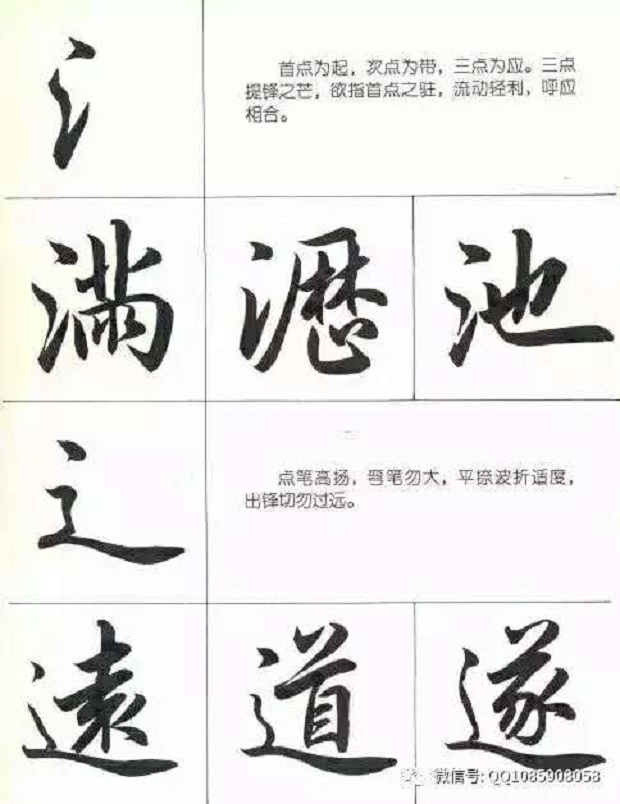 氵
首点为起，次点为带，三点为应。三点
提锋之芒，欲指首点之驻，流动轻利，呼应
相合。
满 瀝 池
辶
点笔高扬，弯笔勿大，平捺波折适度，
出锋切勿过远。
遠 道 遂
微信号: QQ1085908058